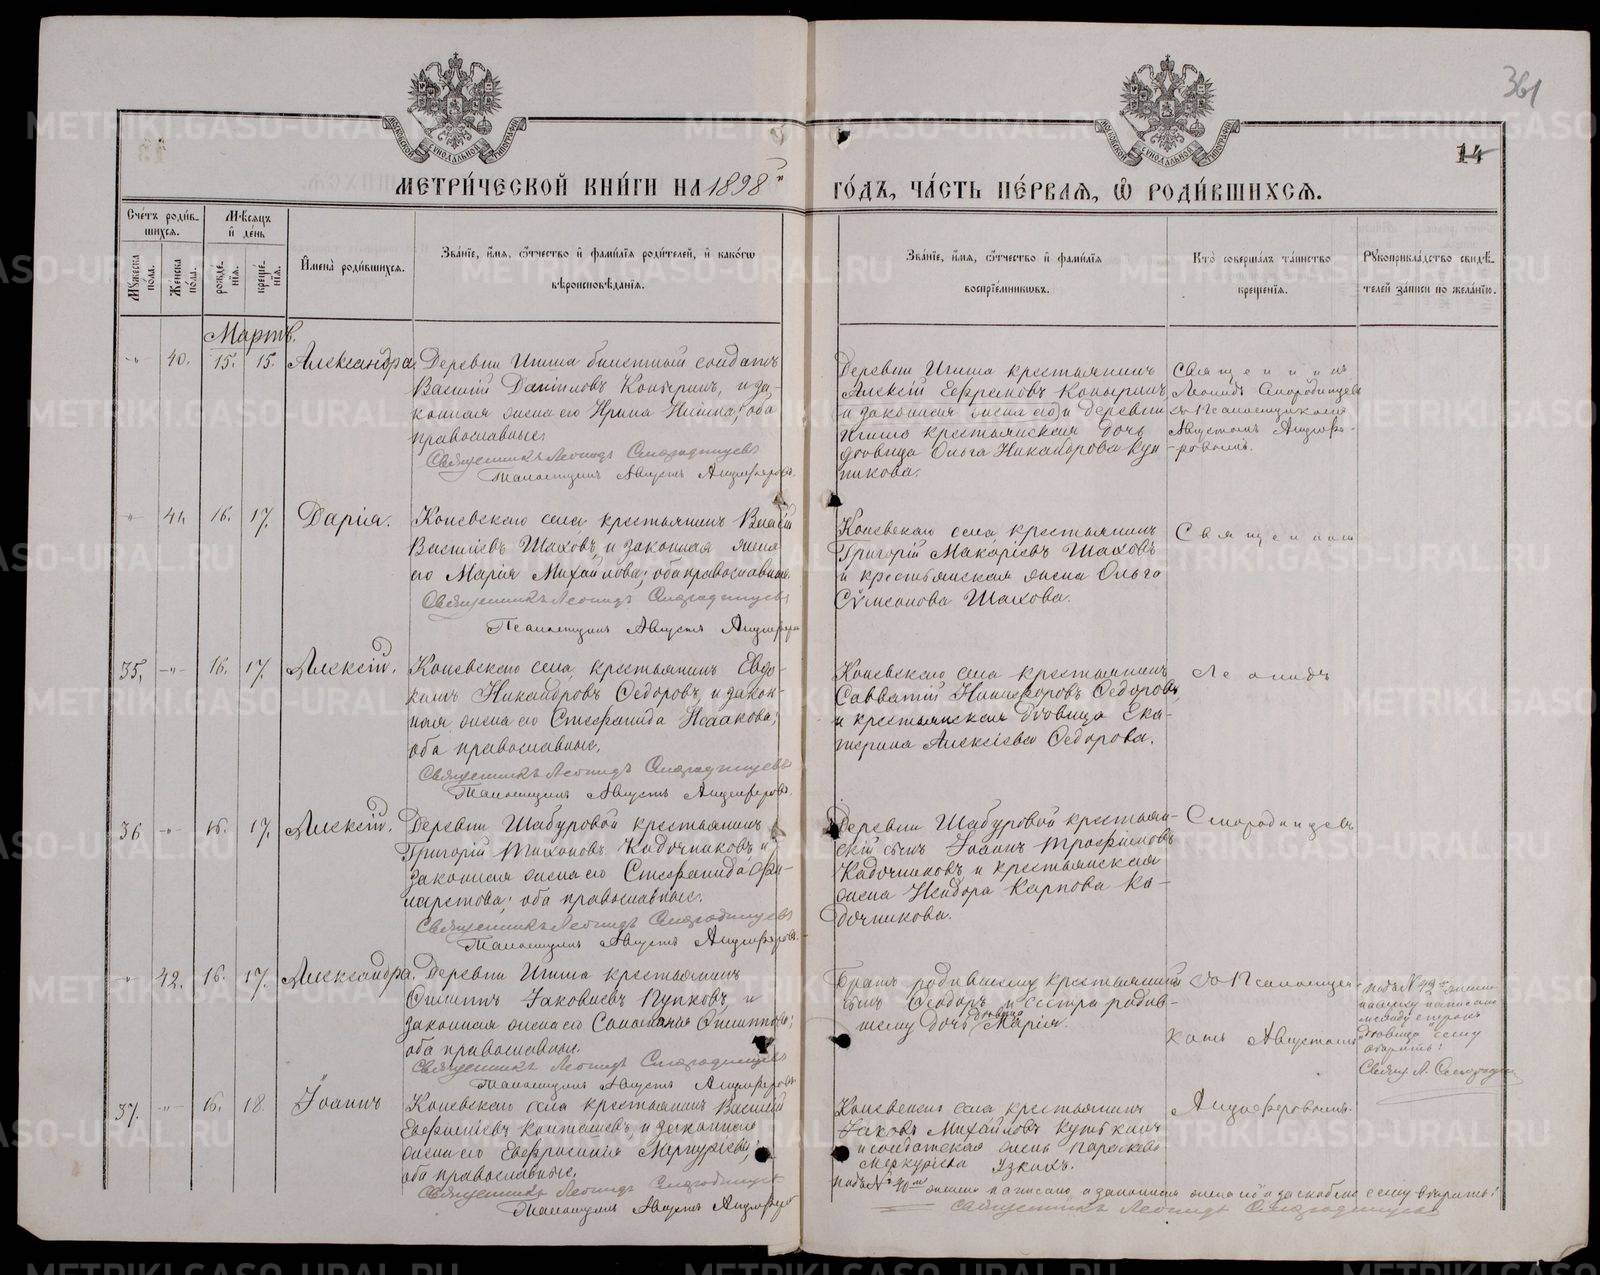 361
14
МЕТРИ́ЧЕСКОЙ КНИ́ГИ НА 1898 й
ГО́ДЪ, ЧА́СТЬ ПЕ́РВАЯ, Ѡ РОДИ́ВШИХСЯ.
МОСКОВСКОЙ СѴНОДАЛЬНОЙ ТИПОГРАФІИ
МОСКОВСКОЙ СѴНОДАЛЬНОЙ ТИПОГРАФІИ
Сче́тъ роди́в-
шихся.
Мужеска по́ла.
Же́нска по́ла.
Мѣ́сяцъ
и де́нь
рожде́нія.
креще́нія.
И҆мена̀ роди́вшихся.
Зва́ніе, и҆́мя, ѻ҆́тчество и҆ фами́лія роди́телей, и҆ како́гѡ
вѣроисповѣ́данія.
Зва́ніе, и҆́мя, ѻ҆́тчество и҆ фами́лія
воспріе́мниковъ.
Кто̀ соверша́лъ та́инство
креще́нія.
Рукоприкла́дство свидѣ́-
телей за́писи по жела́нію.
Мартъ.
-"- 40. 15. 15. Александра.
Деревни Игиша билетный солдатъ
Василій Даніиловъ Копыринъ, и за-
конная жена его Ирина Ильина; оба
православные.
Священникъ Леонидъ Смородинцевъ
Псаломщикъ Августъ Анциферовъ.
Деревни Игиша крестьянинъ
Алексій Ефремовъ Копыринъ
и законная жена его и деревни
Игиша крестьянская дочь
вдовица Ольга Никанорова
Священникъ
Леонидъ Смородинцевъ
съ Псаломщикомъ
Августомъ Анцифе-
-ровымъ.
-"- 41. 16. 17. Дарія.
Коневскаго села крестьянинъ
Василіевъ Шаховъ, и законная жена
его Марія Михайлова; оба православные.
Священникъ Леонидъ Смородинцевъ
Псаломщикъ Августъ Анциферовъ
Коневскаго села крестьянинъ
Григорій Макаріевъ Шаховъ
и крестьянская жена Ольга
Сѵмеонова Шахова.
Священникъ
35. -"- 16. 17. Алексій.
Коневскаго села, крестьянинъ Евдо-
кимъ Никандровъ Ѳедоровъ, и закон-
ная жена его Стефанида Исаакова;
оба православные.
Священникъ Леонидъ Смородинцевъ
Псаломщикъ Августъ Анциферовъ.
Коневскаго села крестьянинъ
Савватій Никифоровъ Ѳедоровъ
и крестьянская вдовица Ека-
терина Алексіева Ѳедорова.
Леонидъ
36 -"- 16. 17. Алексій.
Деревни Шабуровой крестьянинъ
Григорій Тихоновъ Кадочниковъ и
законная жена его Стефанида
оба православные.
Священникъ Леонидъ Смородинцевъ
Псаломщикъ Августъ Анциферовъ.
Деревни Шабуровой крестьян-
скій сынъ Іоаннъ Трофимовъ
Кадочниковъ и крестьянская
жена Исидора Карпова Ка-
дочникова.
Смородинцевъ
-"- 42. 16. 17. Александра.
Деревни Игиша крестьянинъ
Филиппъ Іаковлевъ Пупковъ, и
законная жена его Филиппова;
оба православные.
Священникъ Леонидъ Смородинцевъ
Псаломщикъ Августъ Анциферовъ
Братъ родившему крестьянскій
сынъ Ѳеодоръ и сестра родив-
шему дочь вдовица Марія.
съ Псаломщи-
комъ Августомъ
подъ № 42
написано
между строкъ
"вдовица" сему
вѣрить:
Свящ. Л. Смородинцевъ
37. -"- 16. 18. Іоаннъ
Коневскаго села крестьянинъ Василій
и законная
жена его Евфросинія Меркуріева;
оба православные.
Священникъ Леонидъ Смородинцевъ
Псаломщикъ Августъ Анциферовъ
Коневскаго села крестьянинъ
Іаковъ Михайловъ
и солдатская жена Параскева
Меркуріева Узкихъ.
Анциферовымъ.
подъ № 40 написано "и законная жена его" сему вѣрить:
Священникъ Леонидъ Смородинцевъ
METRIKI.GASO-URAL.RU